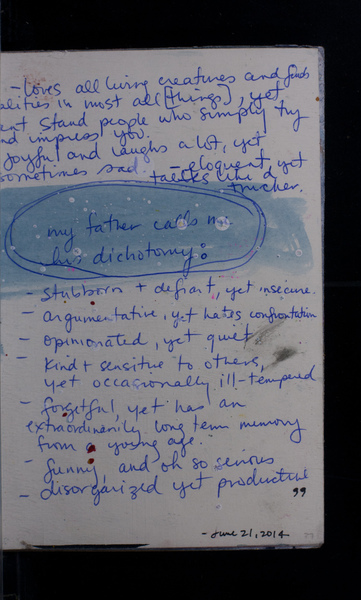 - loves all living creatures and finds
alities in most all [things], yet
ant stand people who simply try
nd impress you.
joyful and laughs a lot, yet
sometimes sad. - eloquent, yet
talks like a
trucker.
my father calls me
his dichotomy:
- stubborn + defiant, yet insecure.
- argumentative, yet hates confrontation
- opinionated, yet quiet
- kind + sensitive to others,
yet occasionally ill-tempered
- forgetful, yet has an
extraordinarily long term memory
from a young age.
- funny, and oh so serious
- disorganized yet productive "
- June 21, 2014